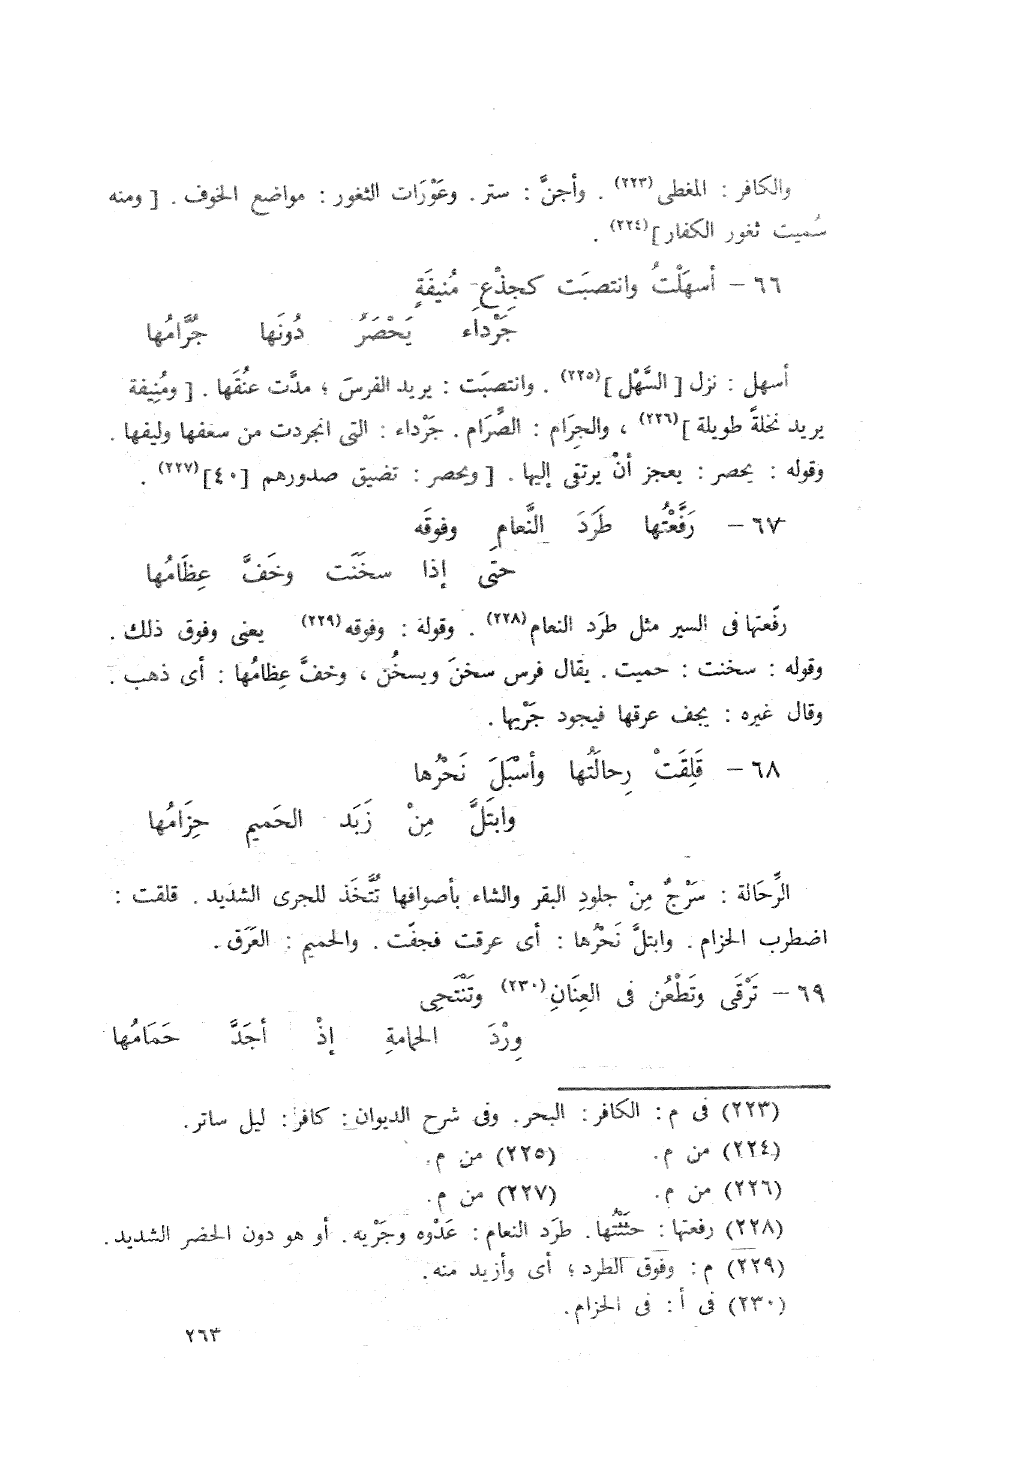 والكافر : المغطى(٢٢٣) . وأجنَّ : ستر . وعَوْرَات الثغور : مواضع الخوف . [ ومنه
سُميت ثغور الكفار ](٢٢٤) .
٦٦ – أسهَلْتُ وانتصبَت كجِذْعِ مُنيفَةٍ
جَرْداء يَحْصَرُ دُونَها جُرَّامُها
أسهل : نزل [ السَّهْل ](٢٢٥) . وانتصبَت : يريد الفرسَ ؛ مدَّت عنُقَها . [ ومُنِيفة
يريد نخلةً طويلة ](٢٢٦) ، والجرَام : الصَّرَام . جَرْداء : التى انجردت من سعفها وليفها .
وقوله : يحصر : يعجز أنْ يرتقى إليها . [ ويحصر : تضيق صدورهم [٤٠](٢٢٧) .
٦٧ – رَفَّعْتُها طَرَدَ النَّعامِ وفوقَه
حتى إذا سخَنَت وخَفَّ عِظَامُها
رفّعتها فى السير مثل طرَد النعام(٢٢٨) . وقوله : وفوقه(٢٢٩) يعنى وفوق ذلك .
وقوله : سخنت : حميت . يقال فرس سخنَ ويسخُن ، وخفَّ عِظامُها : أى ذهب .
وقال غيره : يجف عرقها فيجود جَرْيها .
٦٨ – قَلِقَتْ رِحالَتُها وأسْبَلَ نَحْرُها
وابتَلَّ مِنْ زَبَد الحَميم حِزَامُها
الرِّحَالة : سَرْجٌ مِنْ جلودِ البقر والشاء بأصوافها تُتَّخَذ للجرى الشديد . قلقت :
اضطرب الحزام . وابتلَّ نَحْرُها : أى عرقت فجفّت . والحميم : العَرَق .
٦٩ – تَرْقَى وتَطْعُن فى العِنَانِ(٢٣٠) وتَنْتَحِى
وِرْدَ الحمامةِ إذْ أجَدَّ حَمَامُها
(٢٢٣) فى م : الكافر : البحر . وفى شرح الديوان : كافر : ليل ساتر .
(٢٢٤) من م . (٢٢٥) من م .
(٢٢٦) من م . (٢٢٧) من م .
(٢٢٨) رفعتها : حثَثْتُها . طرَد النعام : عَدْوه وجَرْيه . أو هو دون الحضر الشديد .
(٢٢٩) م : وفوق الطرد ؛ أى وأزيد منه .
(٢٣٠) فى أ : فى الحزام .
٢٦٣